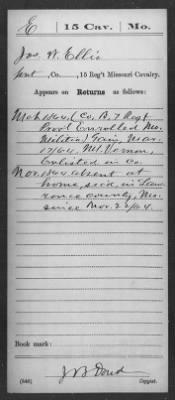 E | 15 Cav. | Mo.
Jas. W. Ellis
Pvt., Co. , 15 Reg't Missouri Cavalry.
Appears on Returns as follows:
Mch 1864 (Co. B. 7 Regt
Prov'l Enrolled Mo.
Militia) Gain, Mar.
17/64, Mt. Vernon,
Enlisted in Co.
Nov. 1864 absent at
home, sick, in Law-
rence county, Mo.
since Nov. 26/64.
Book mark:
(546)
Copyist.